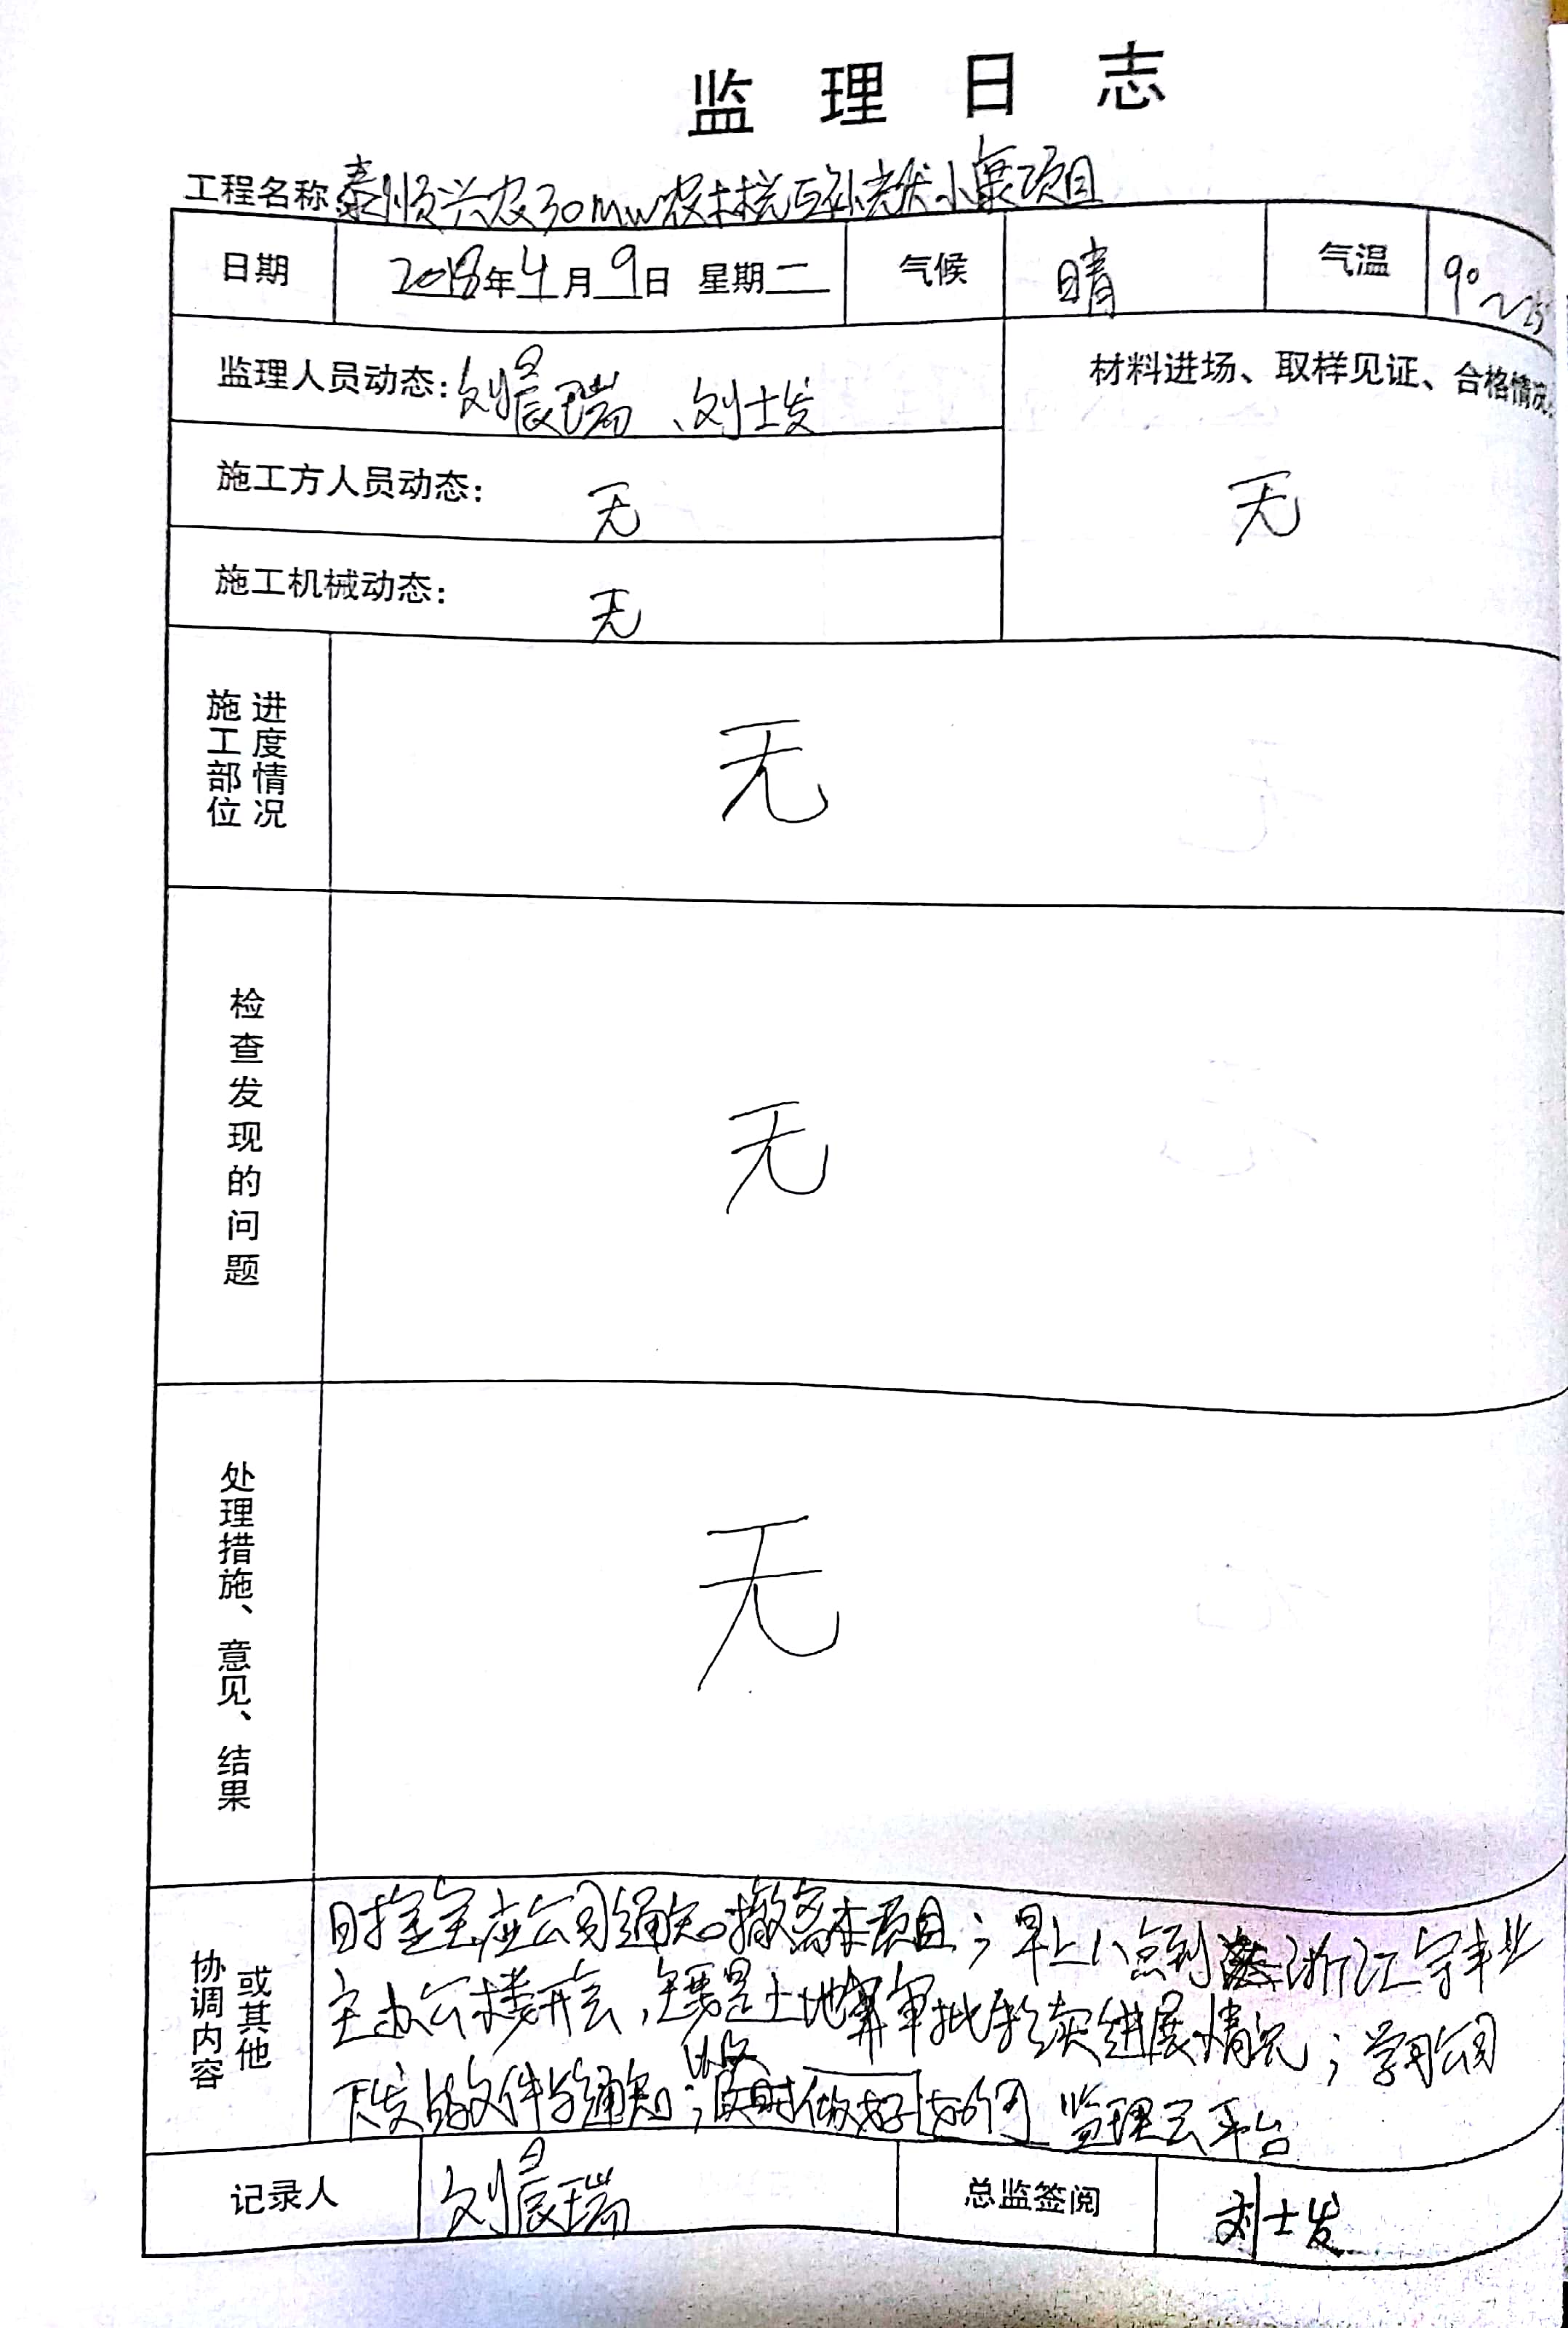 监理日志
工程名称:泰顺兴农30MW农林光互补光伏小康项目
日期 2018年4月9日 星期二 气候 晴 气温 9°~25°
监理人员动态:刘晨瑞、刘士发 材料进场、取样见证、合格情况:
施工方人员动态: 无 无
施工机械动态: 无
施工部位 进度情况 无
检查发现的问题 无
处理措施、意见、结果 无
协调内容 或其他
公司通知撤离本项目;早上八点到 浙江宇丰业
主办公楼开会,主要是土地 审批手续进展情况;学习公司
下发的文件与通知; 及时做好 监理云平台
记录人 刘晨瑞 总监签阅 刘士发